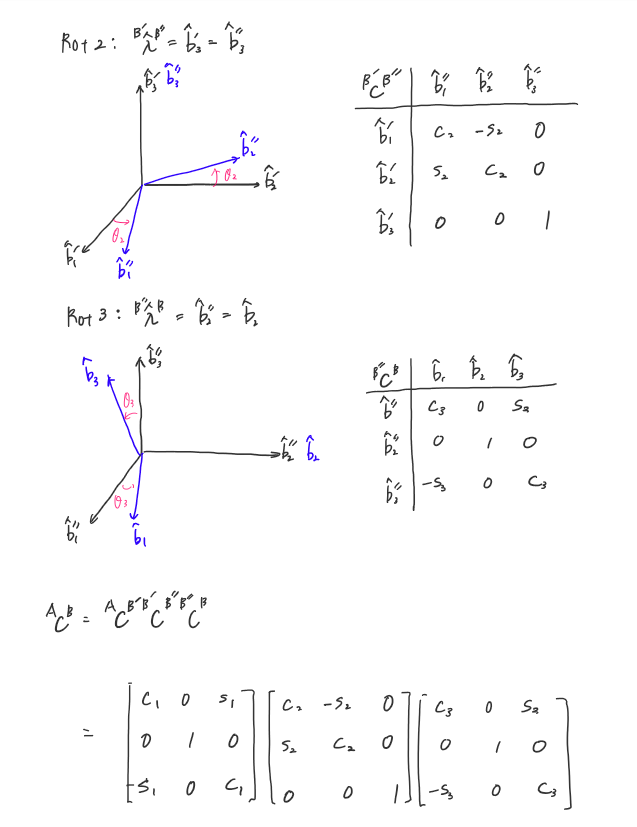 Rot 2 : ᴮ′λ̂ᴮ″ = b̂₃′ = b̂₃″
b̂₃′ b̂₃″
b̂₂″
θ₂
b̂₂′
θ₂
b̂₁′
b̂₁″
ᴮ′Cᴮ″ b̂₁″ b̂₂″ b̂₃″
b̂₁′ C₂ -S₂ 0
b̂₂′ S₂ C₂ 0
b̂₃′ 0 0 1
Rot 3 : ᴮ″λ̂ᴮ = b̂₂″ = b̂₂
b̂₃ b̂₃″
θ₃
b̂₂″ b̂₂
θ₃
b̂₁″
b̂₁
ᴮ″Cᴮ b̂₁ b̂₂ b̂₃
b̂″ C₃ 0 S₂
b̂₂″ 0 1 0
b̂₃″ -S₃ 0 C₃
ᴬCᴮ = ᴬCᴮ′ ᴮ′Cᴮ″ ᴮ″Cᴮ
= [ C₁ 0 S₁ ] [ C₂ -S₂ 0 ] [ C₃ 0 S₂ ]
[ 0 1 0 ] [ S₂ C₂ 0 ] [ 0 1 0 ]
[ -S₁ 0 C₁ ] [ 0 0 1 ] [ -S₃ 0 C₃ ]